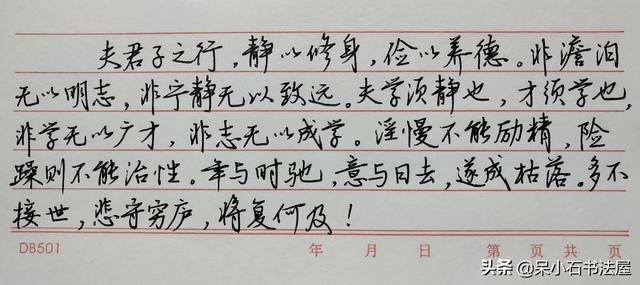 夫君子之行，静以修身，俭以养德。非澹泊
无以明志，非宁静无以致远。夫学须静也，才须学也，
非学无以广才，非志无以成学。淫慢不能励精，险
躁则不能治性。年与时驰，意与日去，遂成枯落。多不
接世，悲守穷庐，将复何及！
DB501 年 月 日 第 页 共 页
头条 @呆小石书法屋